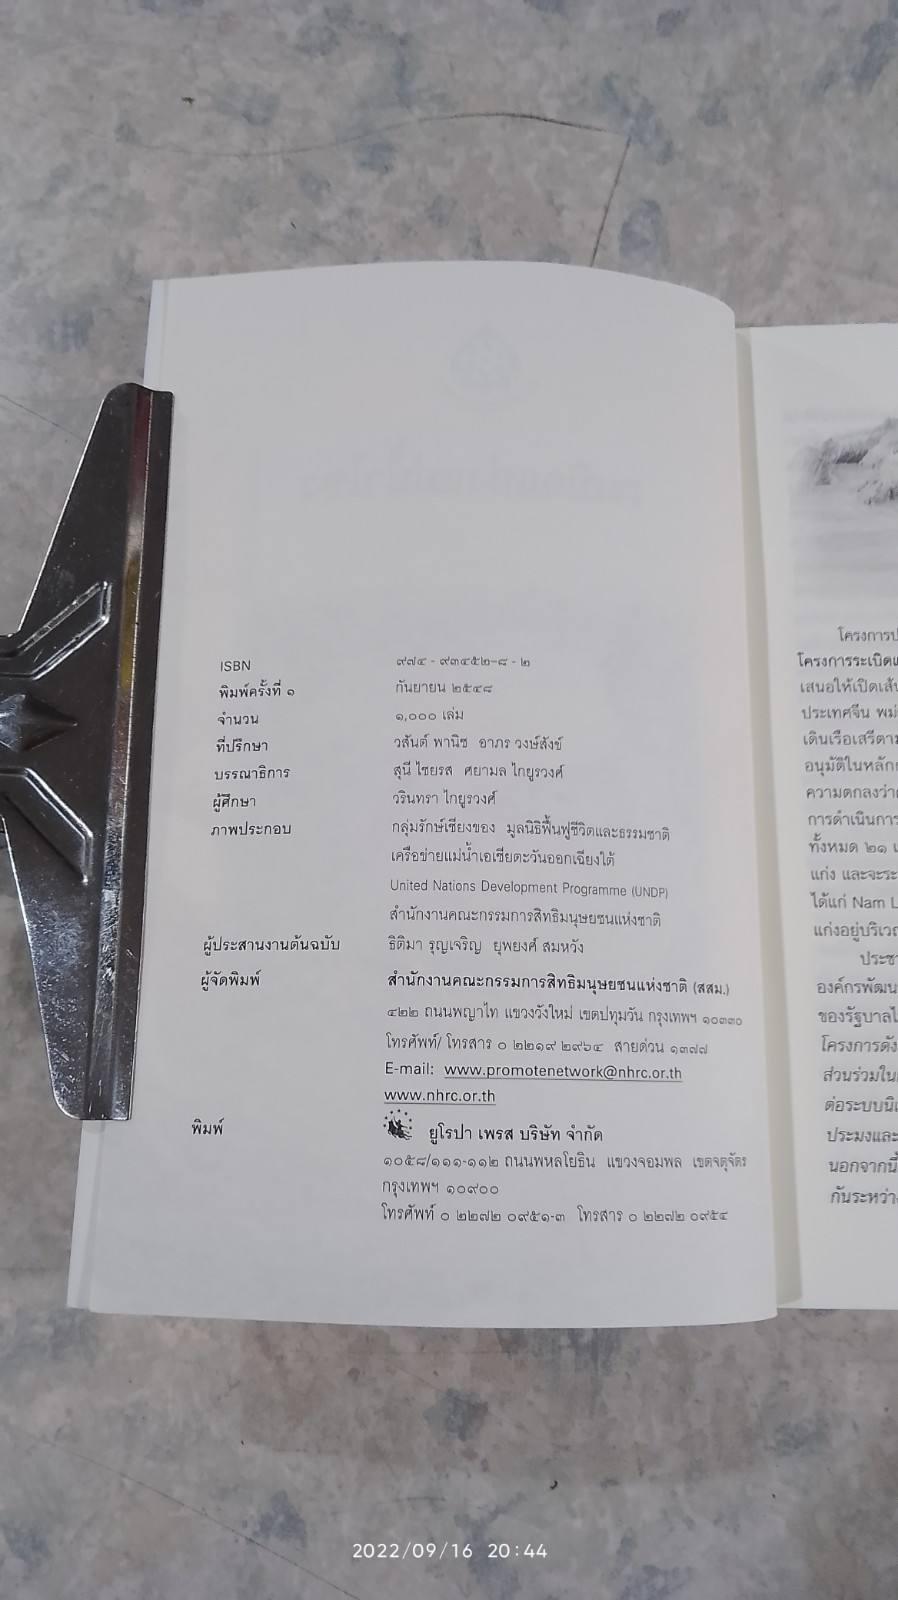 ISBN ๙๗๔ - ๙๓๔๕๒-๘ - ๒
พิมพ์ครั้งที่ ๑ กันยายน ๒๕๔๘
จำนวน ๑,๐๐๐ เล่ม
ที่ปรึกษา วสันต์ พานิช อาภร วงษ์สังข์
บรรณาธิการ สุนี ไชยรส ศยามล ไกยูรวงศ์
ผู้ศึกษา วรินทรา ไกยูรวงศ์
ภาพประกอบ กลุ่มรักษ์เชียงของ มูลนิธิฟื้นฟูชีวิตและธรรมชาติ
เครือข่ายแม่น้ำเอเชียตะวันออกเฉียงใต้
United Nations Development Programme (UNDP)
สำนักงานคณะกรรมการสิทธิมนุษยชนแห่งชาติ
ผู้ประสานงานต้นฉบับ ธิติมา รุญเจริญ ยุพยงศ์ สมหวัง
ผู้จัดพิมพ์ สำนักงานคณะกรรมการสิทธิมนุษยชนแห่งชาติ (สสม.)
๔๒๒ ถนนพญาไท แขวงวังใหม่ เขตปทุมวัน กรุงเทพฯ ๑๐๓๓๐
โทรศัพท์/ โทรสาร ๐ ๒๒๑๙ ๒๙๖๔ สายด่วน ๑๓๗๗
E-mail: www.promotenetwork@nhrc.or.th
www.nhrc.or.th
พิมพ์ ยูโรปา เพรส บริษัท จำกัด
๑๐๕๘/๑๑๑-๑๑๒ ถนนพหลโยธิน แขวงจอมพล เขตจตุจักร
กรุงเทพฯ ๑๐๙๐๐
โทรศัพท์ ๐ ๒๒๗๒ ๐๙๕๑-๓ โทรสาร ๐ ๒๒๗๒ ๐๙๕๔
โครงการป
โครงการระเบิดแ
เสนอให้เปิดเส้น
ประเทศจีน พม่
เดินเรือเสรีตาม
อนุมัติในหลักก
ความตกลงว่าด
การดำเนินการ
ทั้งหมด ๒๑ แ
แก่ง และจะระ
ได้แก่ Nam L
แก่งอยู่บริเวณ
ประชา
องค์กรพัฒน
ของรัฐบาลไ
โครงการดัง
ส่วนร่วมใน
ต่อระบบนิเ
ประมงและ
นอกจากนี้
กันระหว่าง
2022/09/16 20:44